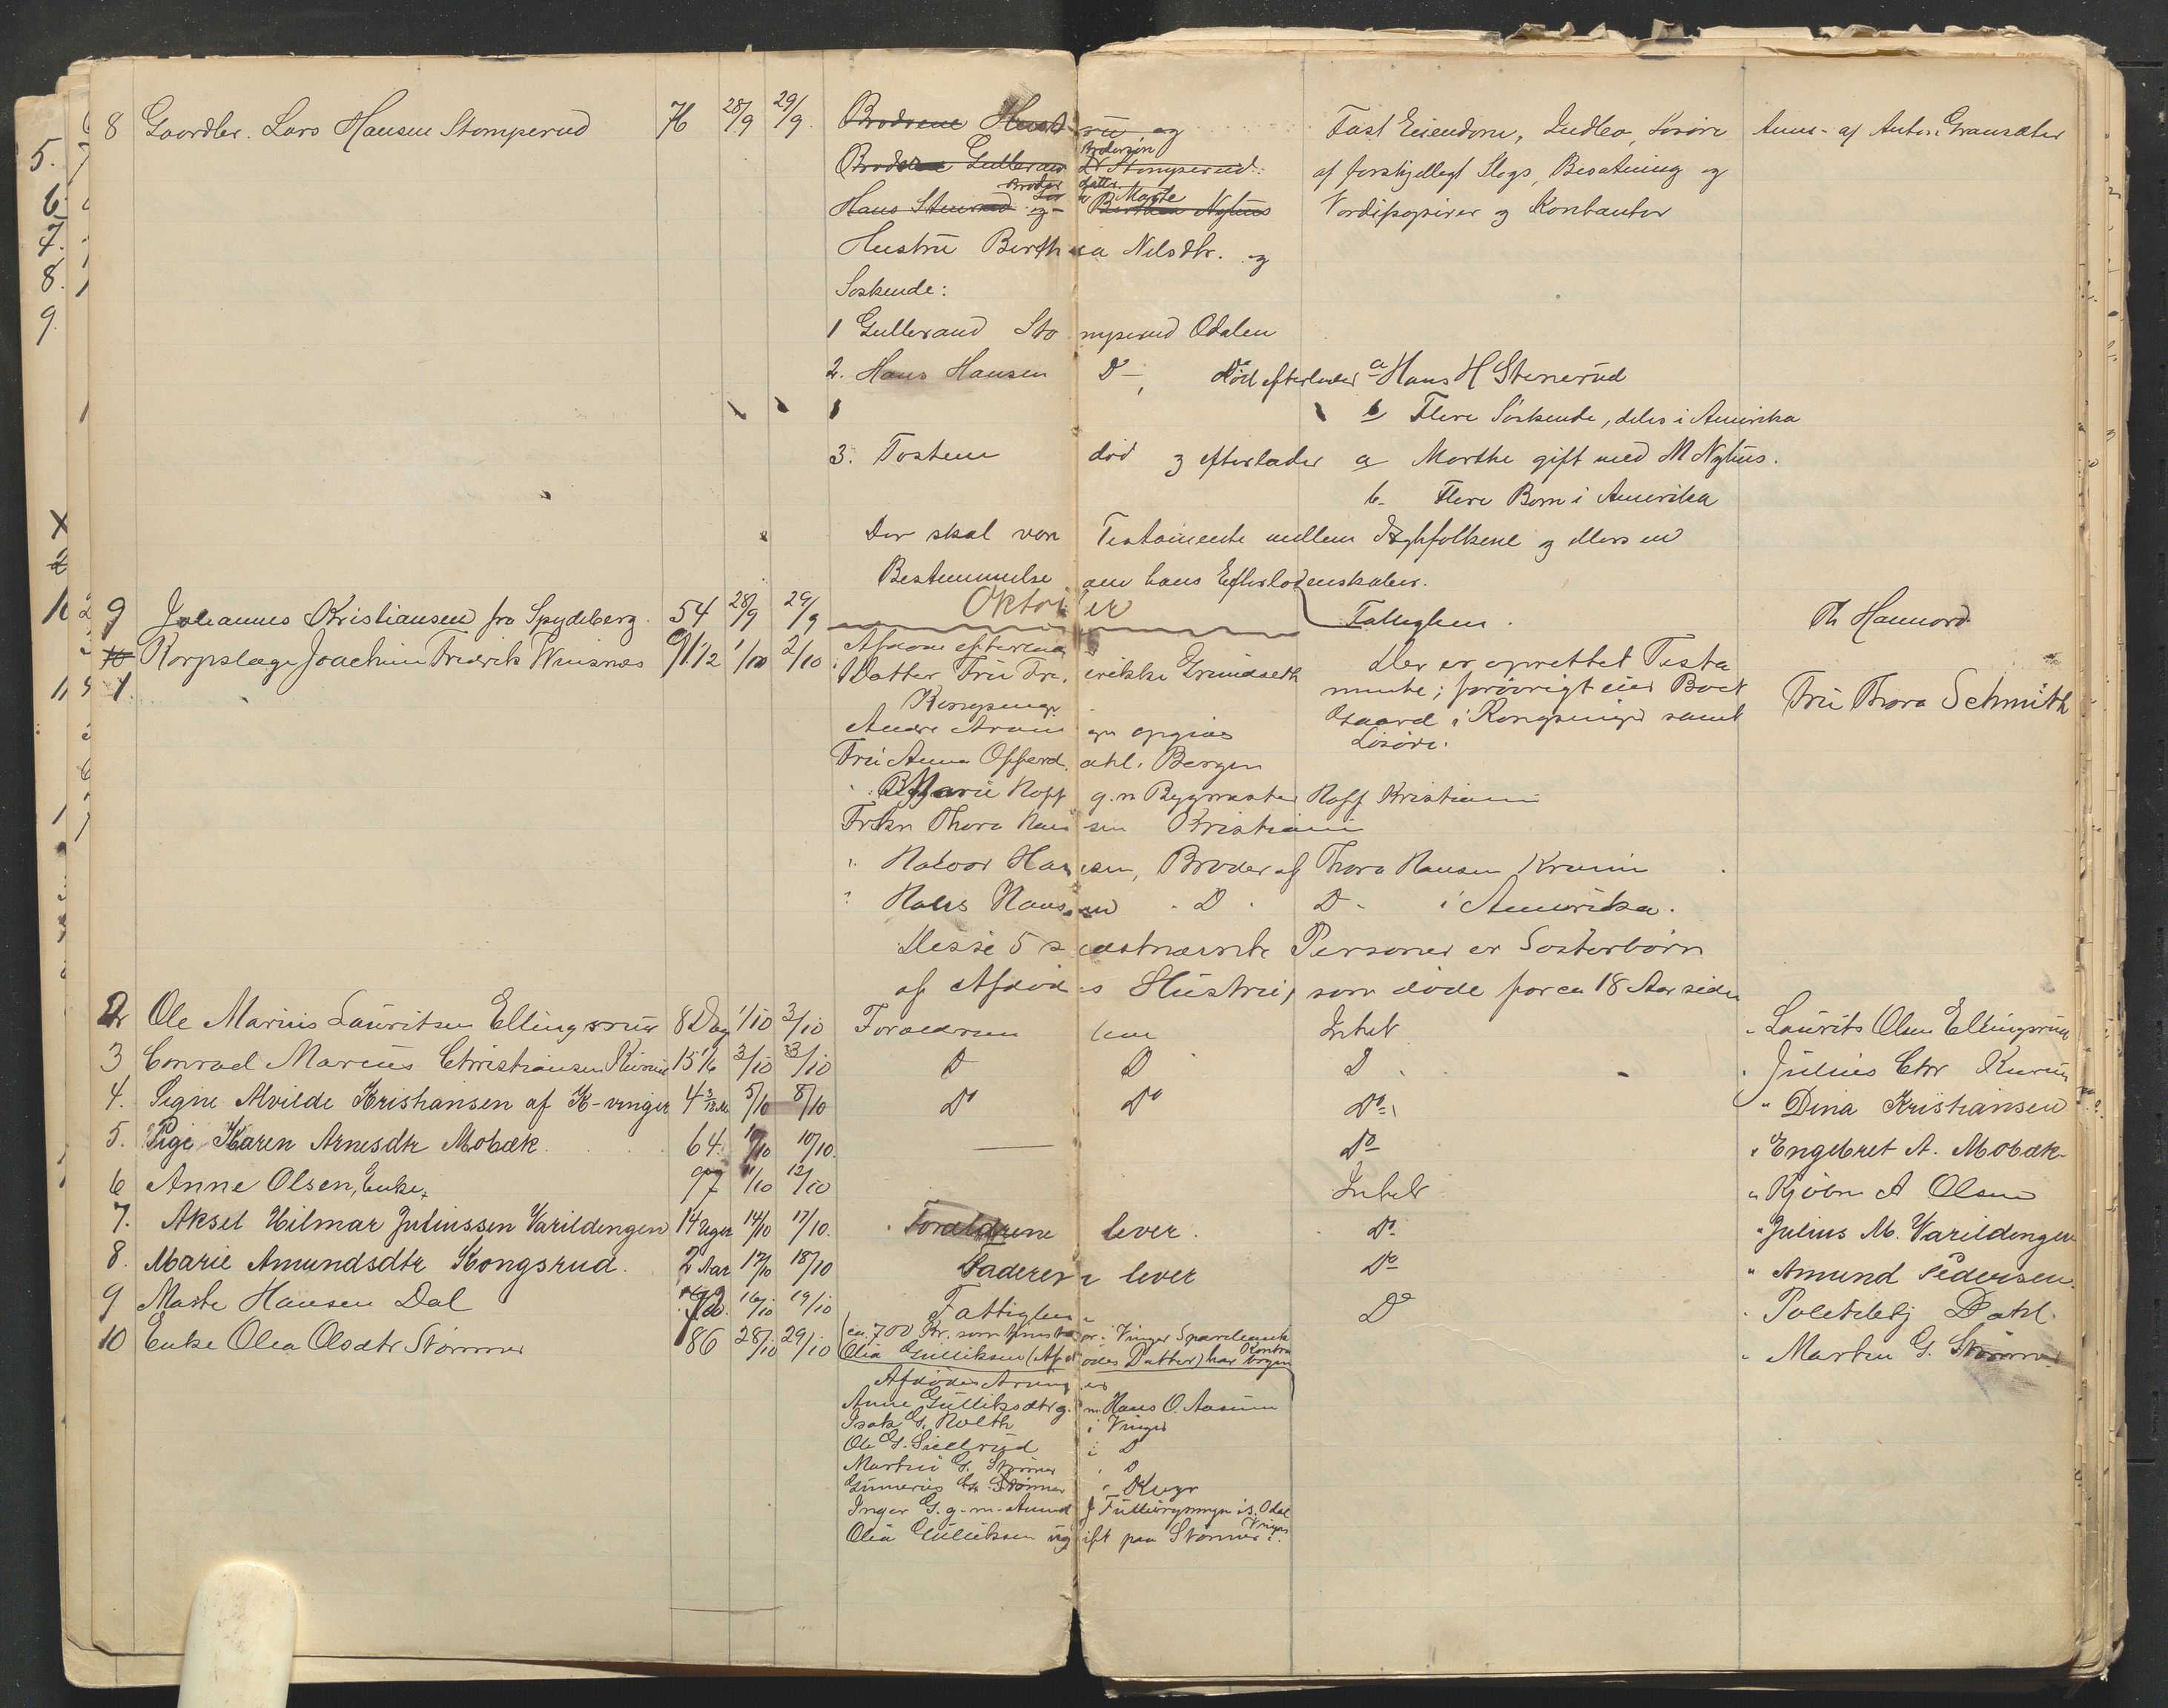 8 Gaardbr. Lars Hansen Stomperud 76 28/9 29/9 Brødrene Hustru og Fast Eiendom, Indbo, Løsøre Anm. af Anton Granæter
Gulleraud Brodersøn Stomperud af forskjelligt Slags, Besætning og
Hans Stenerud og Marte Berthea Nyhus Værdipapirer og Kontanter
Hustru Berthea Nilsdtr. og
Søskende:
1 Gulleraud Stomperud Odalen
2. Hans Hansen Do død efterlader a Hans H Stenerud
b Flere Søskende, deles i Amerika
3. Tosten død og efterlader a Marthe gift med M Nyhus.
b. Flere Børn i Amerika
Der skal være Testamente mellem Ægtefolkene og ellers en
Bestemmelse om hans Efterladenskaber.
9 Johannes Kristiansen fra Spydeberg 54 28/9 29/9 Fattiglem. Th Hannord
Oktober
1. Korpslæge Joachim Fredrik Wiisnæs 91 1/2 1/10 2/10 Afdøde efterlod Der er oprettet Testa
Datter Fru Frederikke Grundseth mente; forøvrigt eier Boet Fru Thora Schmith
Kongsvinger Gaard i Kongsvinger samt
Andre Arvinger opgives Løsøre.
Fru Anna Offerdahl. Bergen
" Marie Hoff g. m. Bygmester Hoff Kristiania
Frkn Thora Hansen Kristiania
" Halvor Hansen, Broder af Thora Hansen Krania
" Hans Hansen Do Do i Amerika.
Disse 5 sidstnævnte Personer er Søsterbørn
af Afdødes Hustru, som døde for ca 18 Aar siden
2 Ole Marius Lauritsen Ellingsrud 8 Dag 1/10 3/10 Forældrene lever Intet " Laurits Olsen Ellingsrud
3 Conrad Marius Christiansen 15 1/6 3/10 3/10 Do Do Do " Julius Chr
4. Signe Alvilde Kristiansen af K-vinger 4 5/10 8/10 Do Do Do " Dina Kristiansen
5. Pige Karen Arnesdtr Mobæk. 64. 10/10 10/10. — Do " Engebret A. Mobæk
6 Anne Olsen, Enke, 97 11/10 12/10 Intet " Kjøbm A Olsen
7. Aksel Hilmar Juliussen Varildengen 14 Uger 14/10 17/10. Forældrene lever. Do " Julius M. Varildengen
8. Marie Amundsdtr Kongsrud. 2 Aar 17/10 18/10 Faderen lever Do " Amund Pedersen
9 Marte Hansen Dal 16/10 19/10 Fattiglem Do " Politibtj Dahl
10 Enke Olea Olsdtr Størmer 86 28/10 29/10 (ca. 700 Kr. som i Vinger Sparebank " Martin G. Størmer
Olia Gulliksen (Afdødes Datter) har
Afdødes Arvinger
Anne Gulliksdtr g. m. Hans O. Aasum
Isak G. Holth i Vinger
Ole G. Siellrud i Do
Martin G. Størmer " Do
Gunerius G. Størmer
Inger G. g. m. Amund J i S. Odal
Olia Gulliksen ugift paa Størmer i Vinger
5.
6.
7.
8.
9.